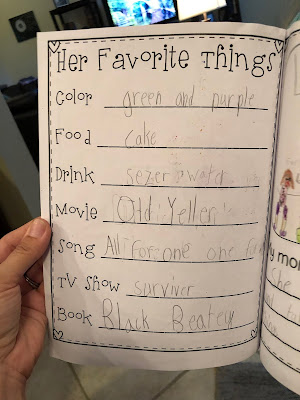 Her Favorite Things
Color green and purple
Food cake
Drink sezer wata
Movie Old Yeller
Song All for one one for
TV Show surviver
Book Black Beatey
y mom
She